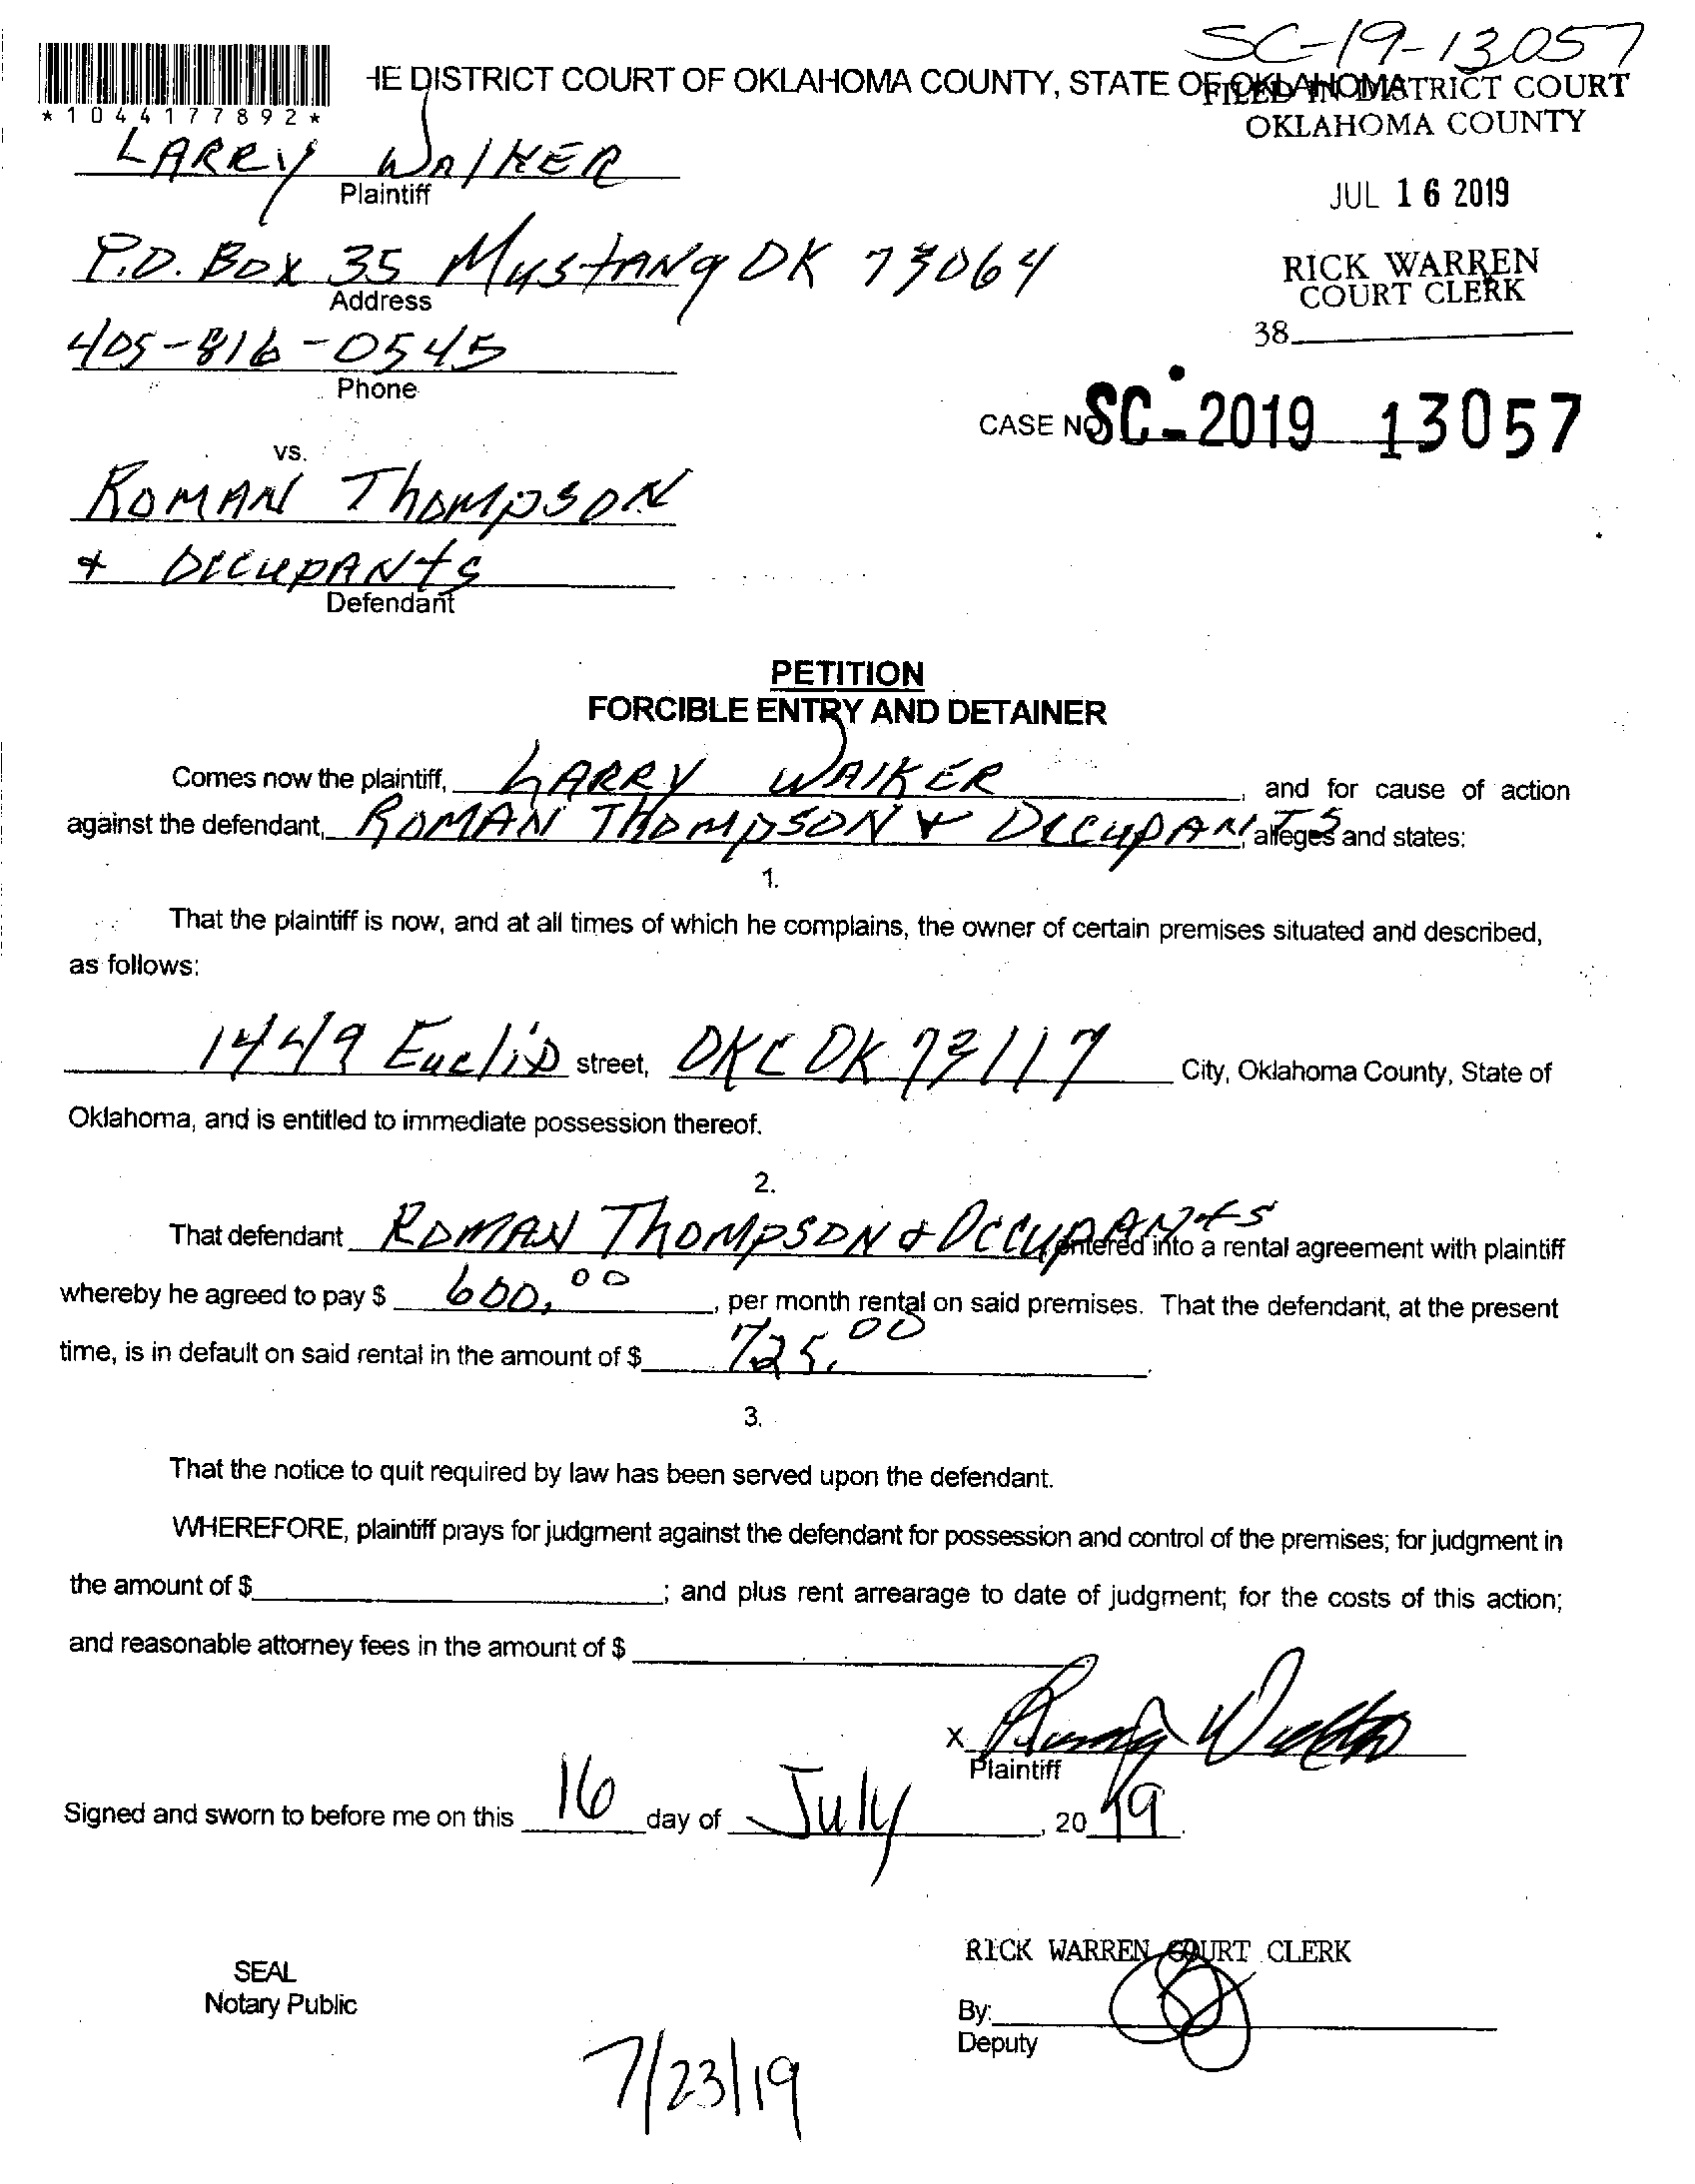 SC-19-13057
HE DISTRICT COURT OF OKLAHOMA COUNTY, STATE OF OKLAHOMA
FILED IN DISTRICT COURT
OKLAHOMA COUNTY
*1044177892*
LARRY WALKER
Plaintiff
JUL 16 2019
P.O. BOX 35 MUSTANG OK 73064
Address
RICK WARREN
COURT CLERK
38
405-816-0545
Phone
CASE NO. SC-2019 13057
vs.
ROMAN THOMPSON
+ OCCUPANTS
Defendant
PETITION
FORCIBLE ENTRY AND DETAINER
Comes now the plaintiff, LARRY WALKER, and for cause of action
against the defendant, ROMAN THOMPSON & OCCUPANTS, alleges and states:
1.
That the plaintiff is now, and at all times of which he complains, the owner of certain premises situated and described,
as follows:
1449 Euclid street, OKC OK 73117 City, Oklahoma County, State of
Oklahoma, and is entitled to immediate possession thereof.
2.
That defendant ROMAN THOMPSON & OCCUPANTS, entered into a rental agreement with plaintiff
whereby he agreed to pay $ 600.00, per month rental on said premises. That the defendant, at the present
time, is in default on said rental in the amount of $ 725.00.
3.
That the notice to quit required by law has been served upon the defendant.
WHEREFORE, plaintiff prays for judgment against the defendant for possession and control of the premises; for judgment in
the amount of $; and plus rent arrearage to date of judgment; for the costs of this action;
and reasonable attorney fees in the amount of $
X
Plaintiff
Signed and sworn to before me on this 16 day of July, 2019.
RICK WARREN COURT CLERK
SEAL
Notary Public
By:
Deputy
7/23/19